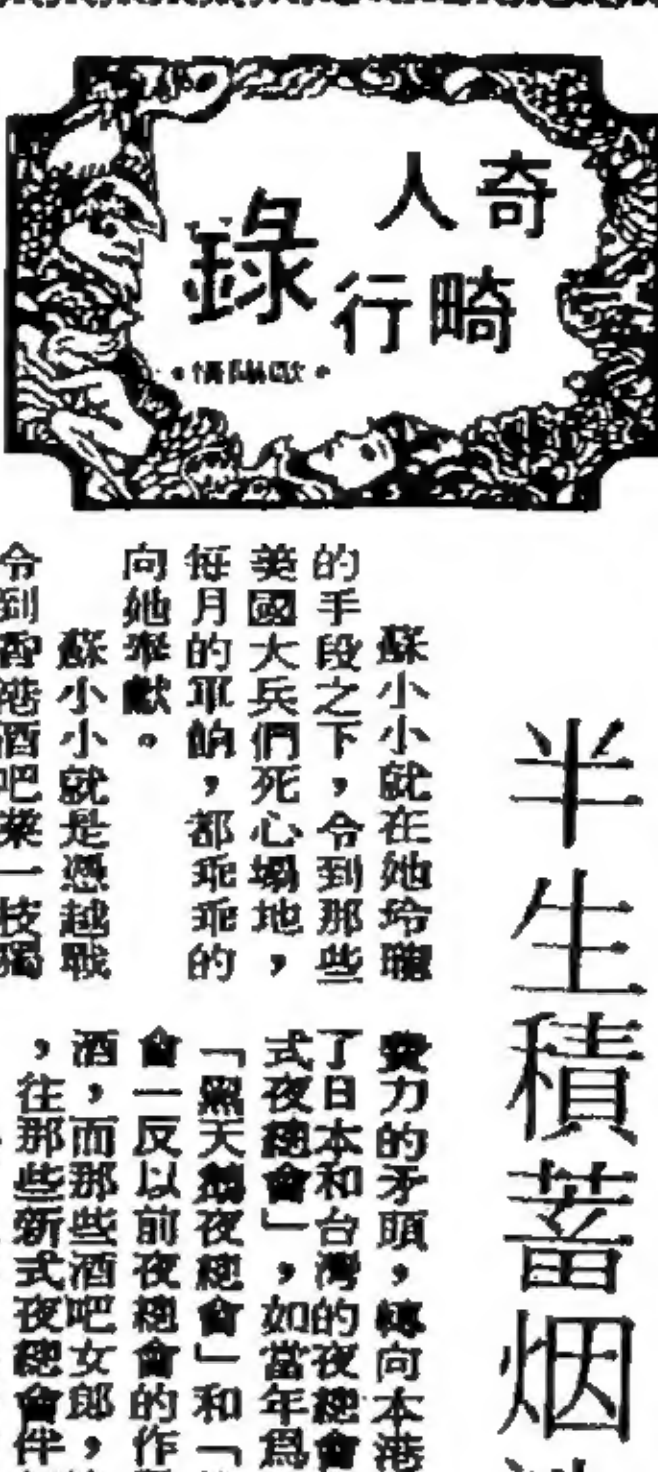 奇人
畸行
錄
半生積蓄烟
蘇小小就在她玲瓏
的手段之下，令到那些
美國大兵們死心塌地，
每月的軍餉，都乖乖的
向她奉獻。
蘇小小就是憑越戰
令到香港酒吧業一枝獨
費力的矛頭，轉向本港
了日本和台灣的夜總會
式夜總會」，如當年爲
「黑天鵝夜總會」和「
會一反以前夜總會的作
酒，而那些酒吧女郎，
，往那些新式夜總會伴